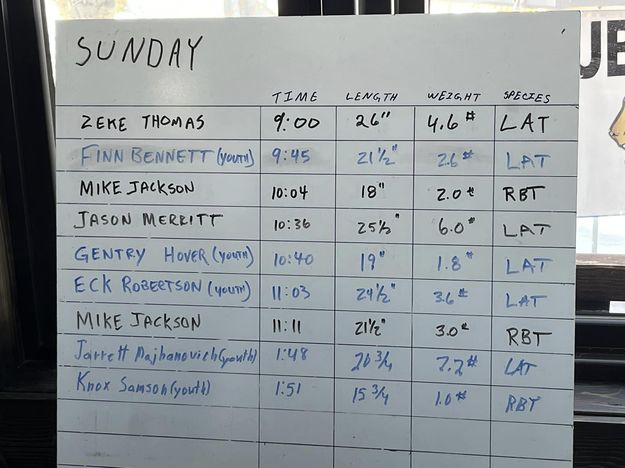 SUNDAY
TIME LENGTH WEIGHT SPECIES
ZEKE THOMAS 9:00 26" 4.6# LAT
FINN BENNETT (youth) 9:45 21 1/2" 2.6# LAT
MIKE JACKSON 10:04 18" 2.0# RBT
JASON MERRITT 10:36 25 1/2" 6.0# LAT
GENTRY HOVER (youth) 10:40 19" 1.8# LAT
ECK ROBERTSON (youth) 11:03 24 1/2" 3.6# LAT
MIKE JACKSON 11:11 21 1/2" 3.0# RBT
Jarrett Majhanovich (youth) 1:48 20 3/4 2.2# LAT
Knox Samson (youth) 1:51 15 3/4 1.0# RBT